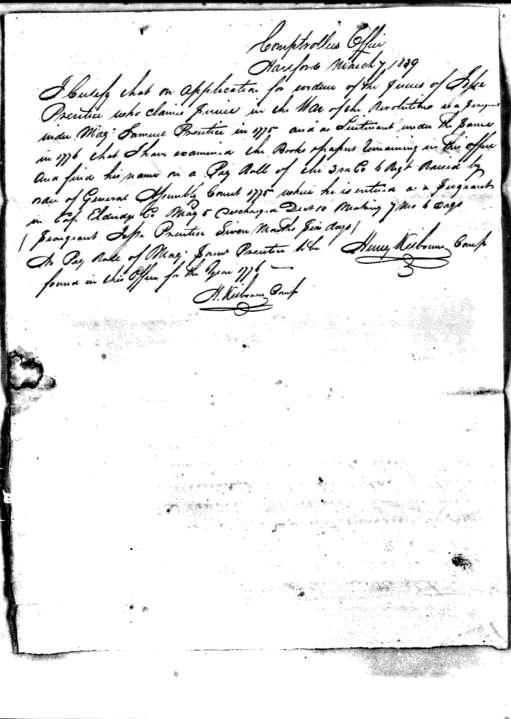 Comptrollers Office
Hartford March 7 1839
I Certify that on application for evidence of the Service of Jesse
Prentice who claims Service in the War of the Revolution as a Sergant
under Maj Samuel Prentice in 1775 and as Lieutenant under the Same
in 1776 that I have examined the Books & papers remaining in this office
and find his name on a Pay Roll of the 3rd Co 6 Regt Raised by
order of General Assembly Connt 1775 where he is entered as a Sergeant
in Cap Co May 5 Discharged Decr 10 Making 7 Mo 6 Days
(Seargeant Jesse Prentice Seven Months Six days)
No Pay Role of Maj Saml Prentice to be
found in this Office for the Year 1776
Henry Kilbourn Comp
H. Kilbourn Comp